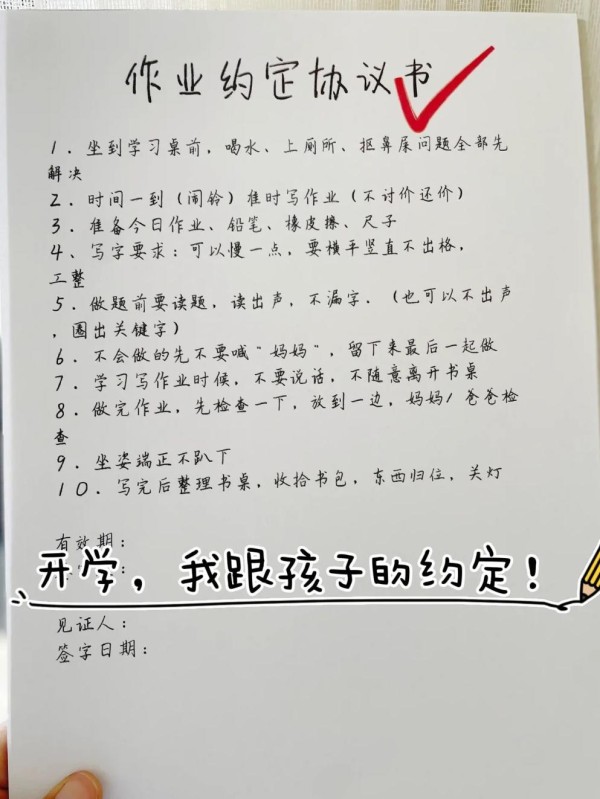 作业约定协议书
1.坐到学习桌前,喝水、上厕所、抠鼻屎问题全部先
解决
2.时间一到(闹铃)准时写作业(不讨价还价)
3.准备今日作业、铅笔、橡皮擦、尺子
4、写字要求:可以慢一点,要横平竖直不出格,
工整
5.做题前要读题,读出声,不漏字.(也可以不出声
,圈出关键字)
6.不会做的先不要喊"妈妈",留下来最后一起做
7.学习写作业时候,不要说话,不随意离开书桌
8.做完作业,先检查一下,放到一边,妈妈/爸爸检
查
9.坐姿端正不趴下
10.写完后整理书桌,收拾书包,东西归位,关灯
有效期:
开学,我跟孩子的约定!
见证人:
签字日期: